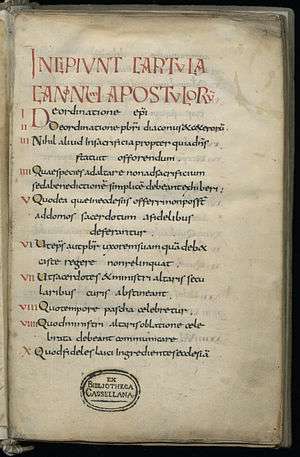 INCIPIUNT CARTULA
CANONEI APOSTULORŪ
I De ordinatione epi
II De ordinatione pbri diaconus &
III Nihil aliud in sacrificia propter quia dns
statuit offorendum .
IIII Quae species ad altare non ad sacrificium
sed a benedictionē simplicē debeant exhiberi ;
V Quod ea quae in eclesiis offerri non possē
ad domos sacerdotum a fidelibus
deferantur .
VI Ut eps aut pbr uxorem suam quā debet
caste regere non relinquat .
VII Ut sacerdotes & ministri altaris secu
laribus curis abstineant .
VIII Quo tempore pascha celebretur .
VIIII Quod ministri altaris oblatione cele
brata debeant communicare .
X Quod fideles laici ingredientes ecclesiā
EX
BIBLIOTHECA
CASSELLANA.